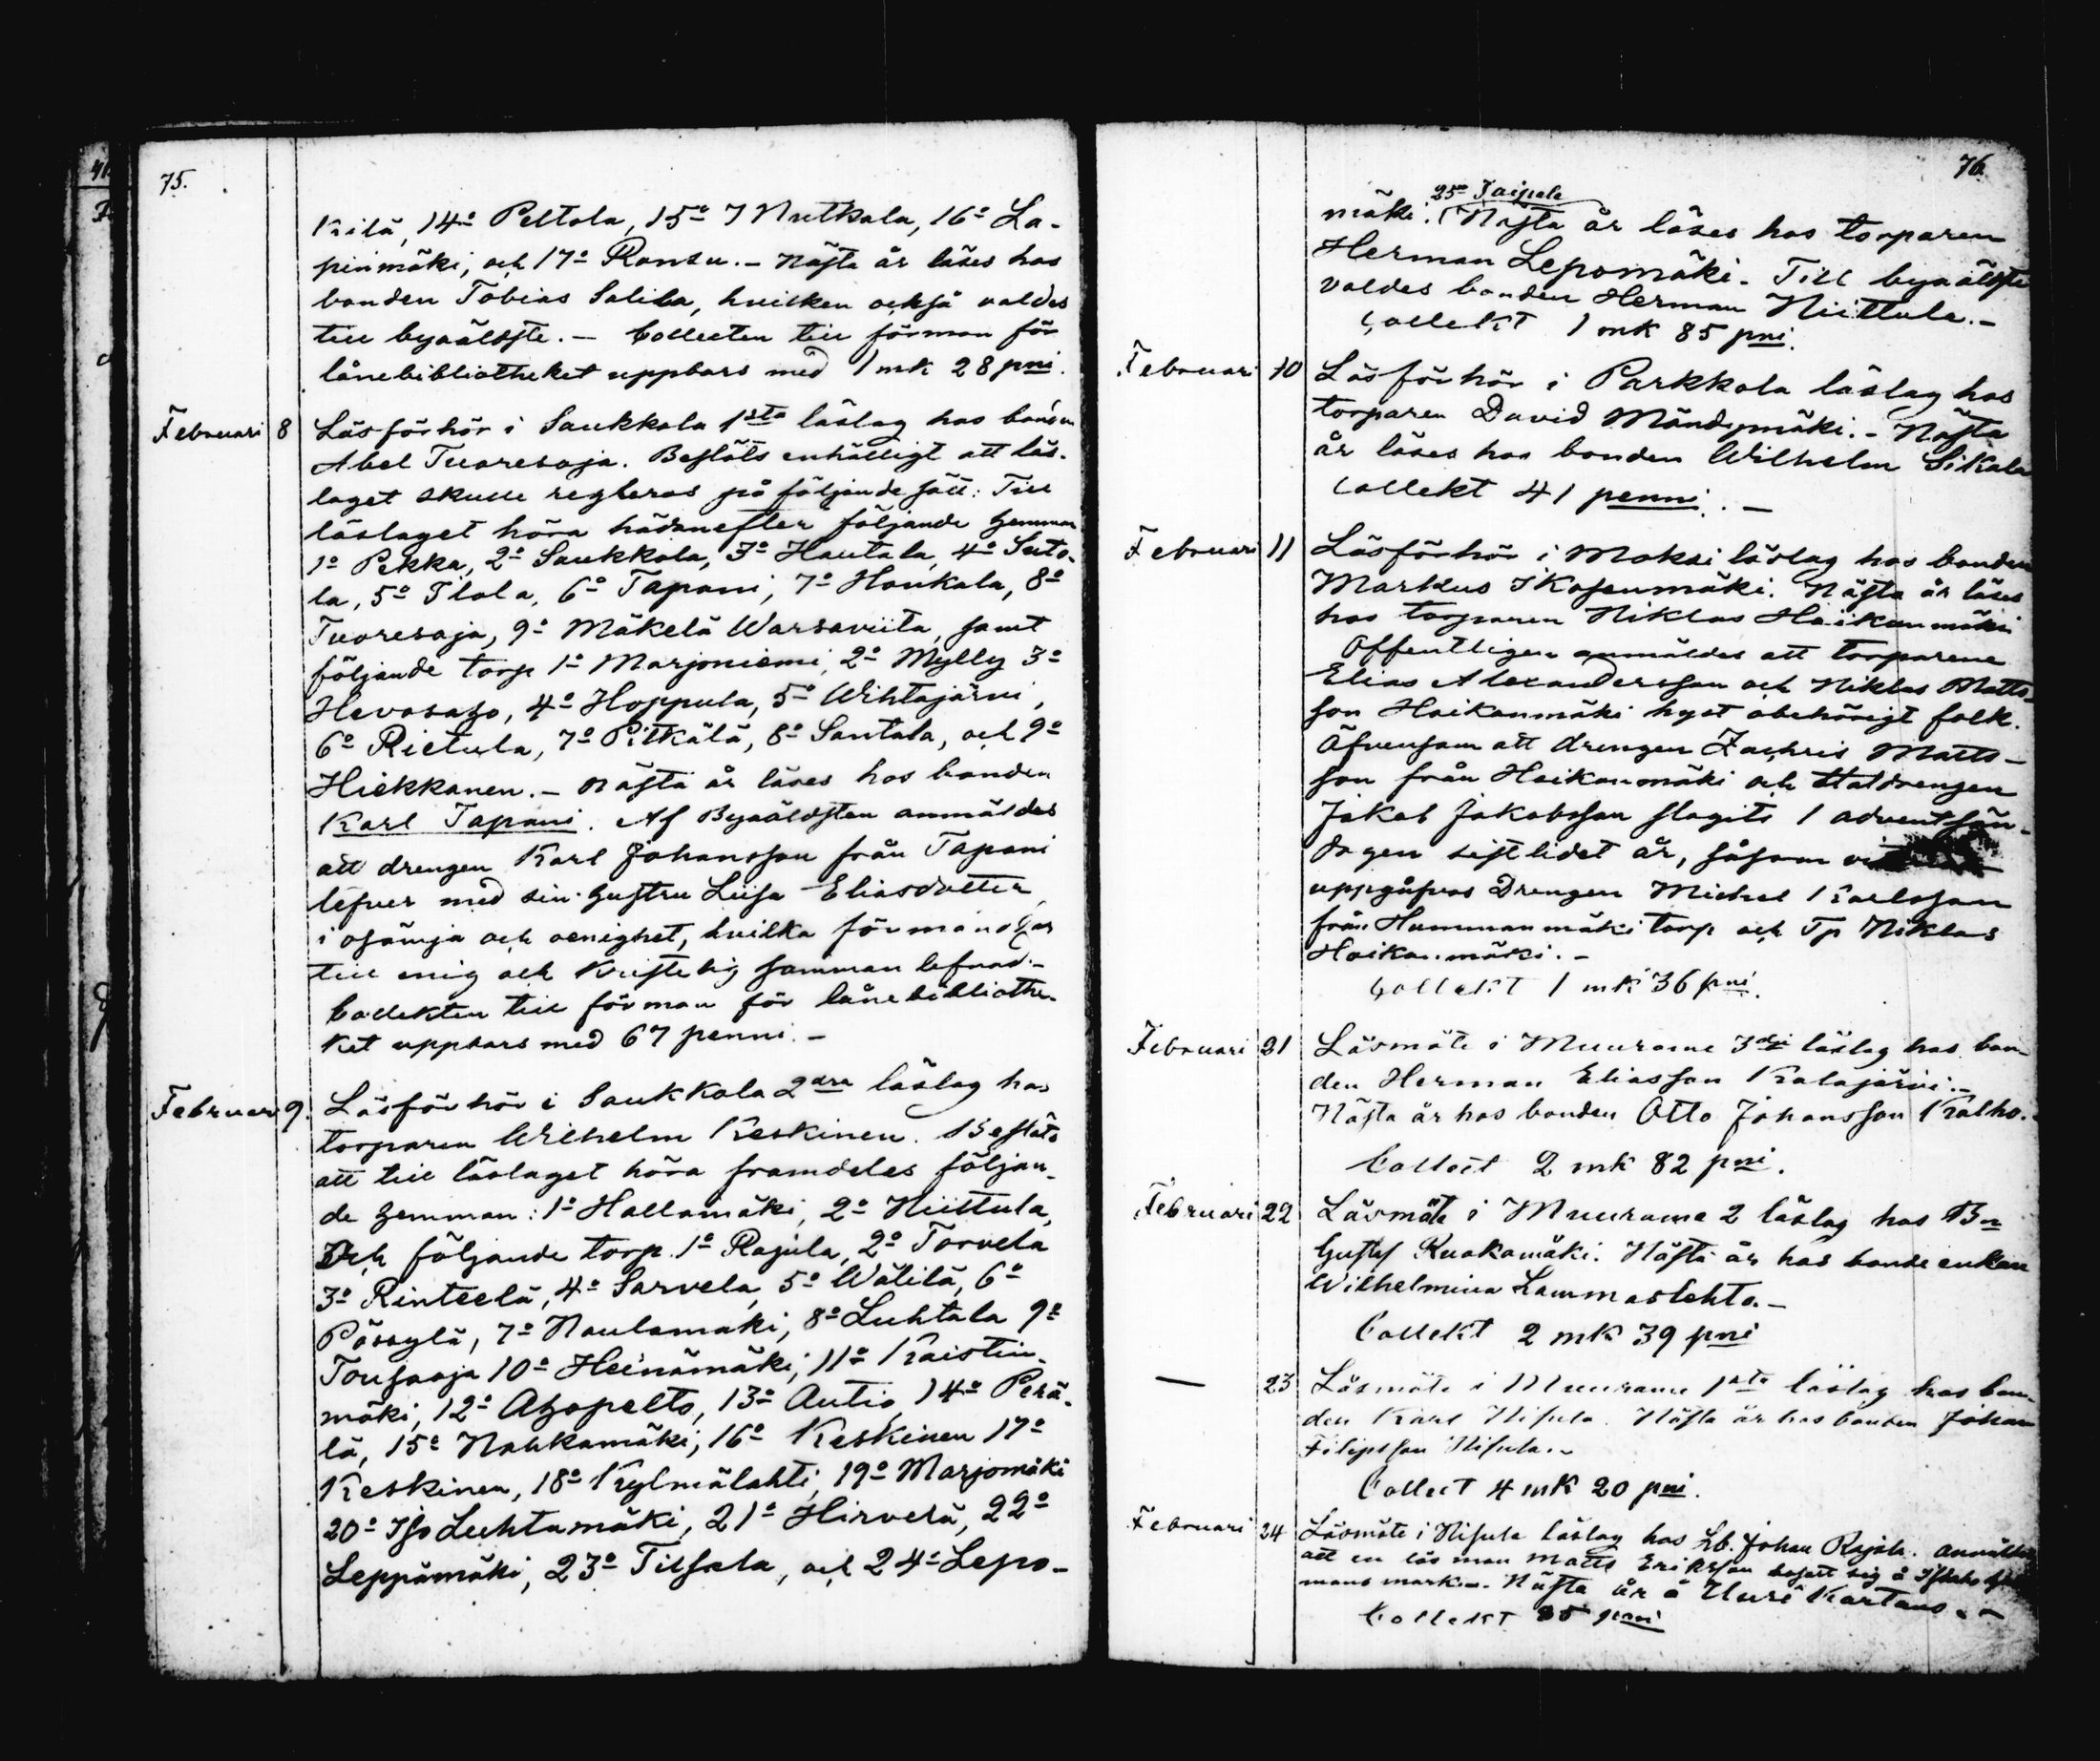 75.
Kilä, 14o Peltola, 15o J Nutkala, 16o La-
pinmäki, och 17o Ransu. - Nästa år läses hos
bonden Tobias Salila, hvilken också valdes
till byaäldste. - Collecten till förmon för
lånebibliotheket uppbars med 1 mk 28 pni.
Februari 8 Läsförhör i Saukkola 1sta läslag hos bonden
Abel Tuoresoja. Beslöts enhälligt att läs-
laget skulle regleras på följande sätt: Till
läslaget höra hädanefter följande hemman
1o Pekka, 2o Saukkola, 3o Hautala, 4o Suto-
la, 5o Ilola, 6o Tapani, 7o Honkala, 8o
Tuoresoja, 9o Mäkelä Warsaviita, samt
följande torp 1o Marjoniemi, 2o Mylly 3o
Hevosaho, 4o Hoppula, 5o Wihtajärvi,
6o Rietula, 7o Pitkälä, 8o Santala, och 9o
Hiekkanen. - Nästa år läses hos bonden
Karl Tapani. Af Byaäldsten anmäldes
att drengen Karl Johansson från Tapani
lefver med sin hustru Lisa Eliasdotter
i osämja och oenighet, hvilka förmandtes
till enig och kristelig samman lefnad. -
Collekten till förmon för lånebibliothe-
ket uppbars med 67 penni. -
Februari 9. Läsförhör i Saukkola 2dra läslag hos
torparen Wilhelm Keskinen. Beslöts
att till läslaget höra framdeles följan-
de hemman: 1o Hallamäki, 2o Niittula,
Och följande torp. 1o Rajula, 2o Torvela
3o Rinteelä, 4o Sarvela, 5o Wälilä, 6o
Pössylä, 7o Naulamäki, 8o Luhtala 9o
Tousaaja 10o Heinämäki, 11o Kaistin-
mäki, 12o Ahopelto, 13o Autio, 14o Perä-
lä, 15o Nahkamäki, 16o Keskinen 17o
Keskinen, 18o Kylmälahti, 19o Marjomäki
20o Iso Luhtamäki, 21o Hirvelä, 22o
Leppämäki, 23o Tilsala, och 24o Lepo-
76.
25o Taipale
mäki. Nästa år läses hos torparen
Herman Lepomäki. Till byaäldste
valdes bonden Herman Niittula. -
Collekt 1 mk 85 pni.
Februari 10 Läsförhör i Parkkola läslag hos
torparen David Mändymäki. - Nästa
år läses hos bonden Wilhelm Sikala
Collekt 41 penni. -
Februari 11 Läsförhör i Moksi läslag hos bonden
Markus Ikosenmäki. Nästa år läses
hos torparen Niklas Haikanmäki
Offentligen anmäldes att torparene
Elias Alexandersson och Niklas Matts-
son Haikanmäki hyst obehörigt folk.
Äfvensom att drengen Zachris Matts-
son från Haikanmäki och Statdrengen
Jakob Jakobsson slagits 1 advent sön-
dagen sistlidet år, såsom
uppgåfvos Drengen Michel Karlsson
från Hummanmäki torp och Tp Niklas
Haikanmäki. -
Collekt 1 mk 36 pni.
Februari 21 Läsmöte i Muurame 3dje läslag hos bon-
den Herman Eliasson Kalajärvi. -
Nästa år hos bonden Otto Johansson Kalho. -
Collect 2 mk 82 pni.
Februari 22 Läsmöte i Muurame 2 läslag hos Bn
Gustaf Ruokamäki. Nästa år hos bonde enkan
Wilhelmina Lammaslehto. -
Collekt 2 mk 39 pni
— 23 Läsmöte i Muurame 1sta läslag hos bon-
den Karl Nisula. Nästa år hos bonden Johan
Filipsson Nisula. -
Collect 4 mk 20 pni.
Februari 24 Läsmöte i Nisula läslag hos Lb. Johan Rajala. anmältes
att en lös man Matts Eriksson bosatt sig å
mans mark. - Nästa år å Kartano. -
Collekt 85 pni